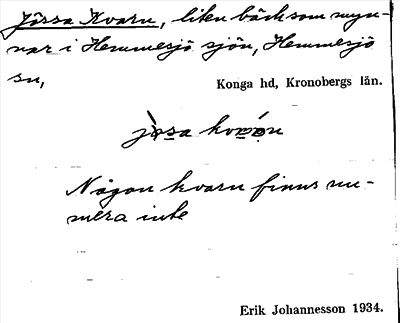 Jössa Kvarn, liten bäck som myn-
nar i Hemmesjö sjön, Hemmesjö
sn,
Konga hd, Kronobergs län.
Någon kvarn finns nu-
mera inte
Erik Johannesson 1934.